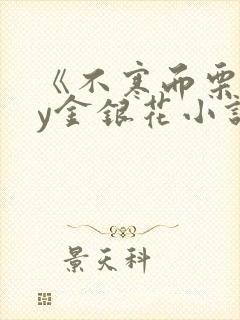 《不寒而栗
y金银花小说
景天科